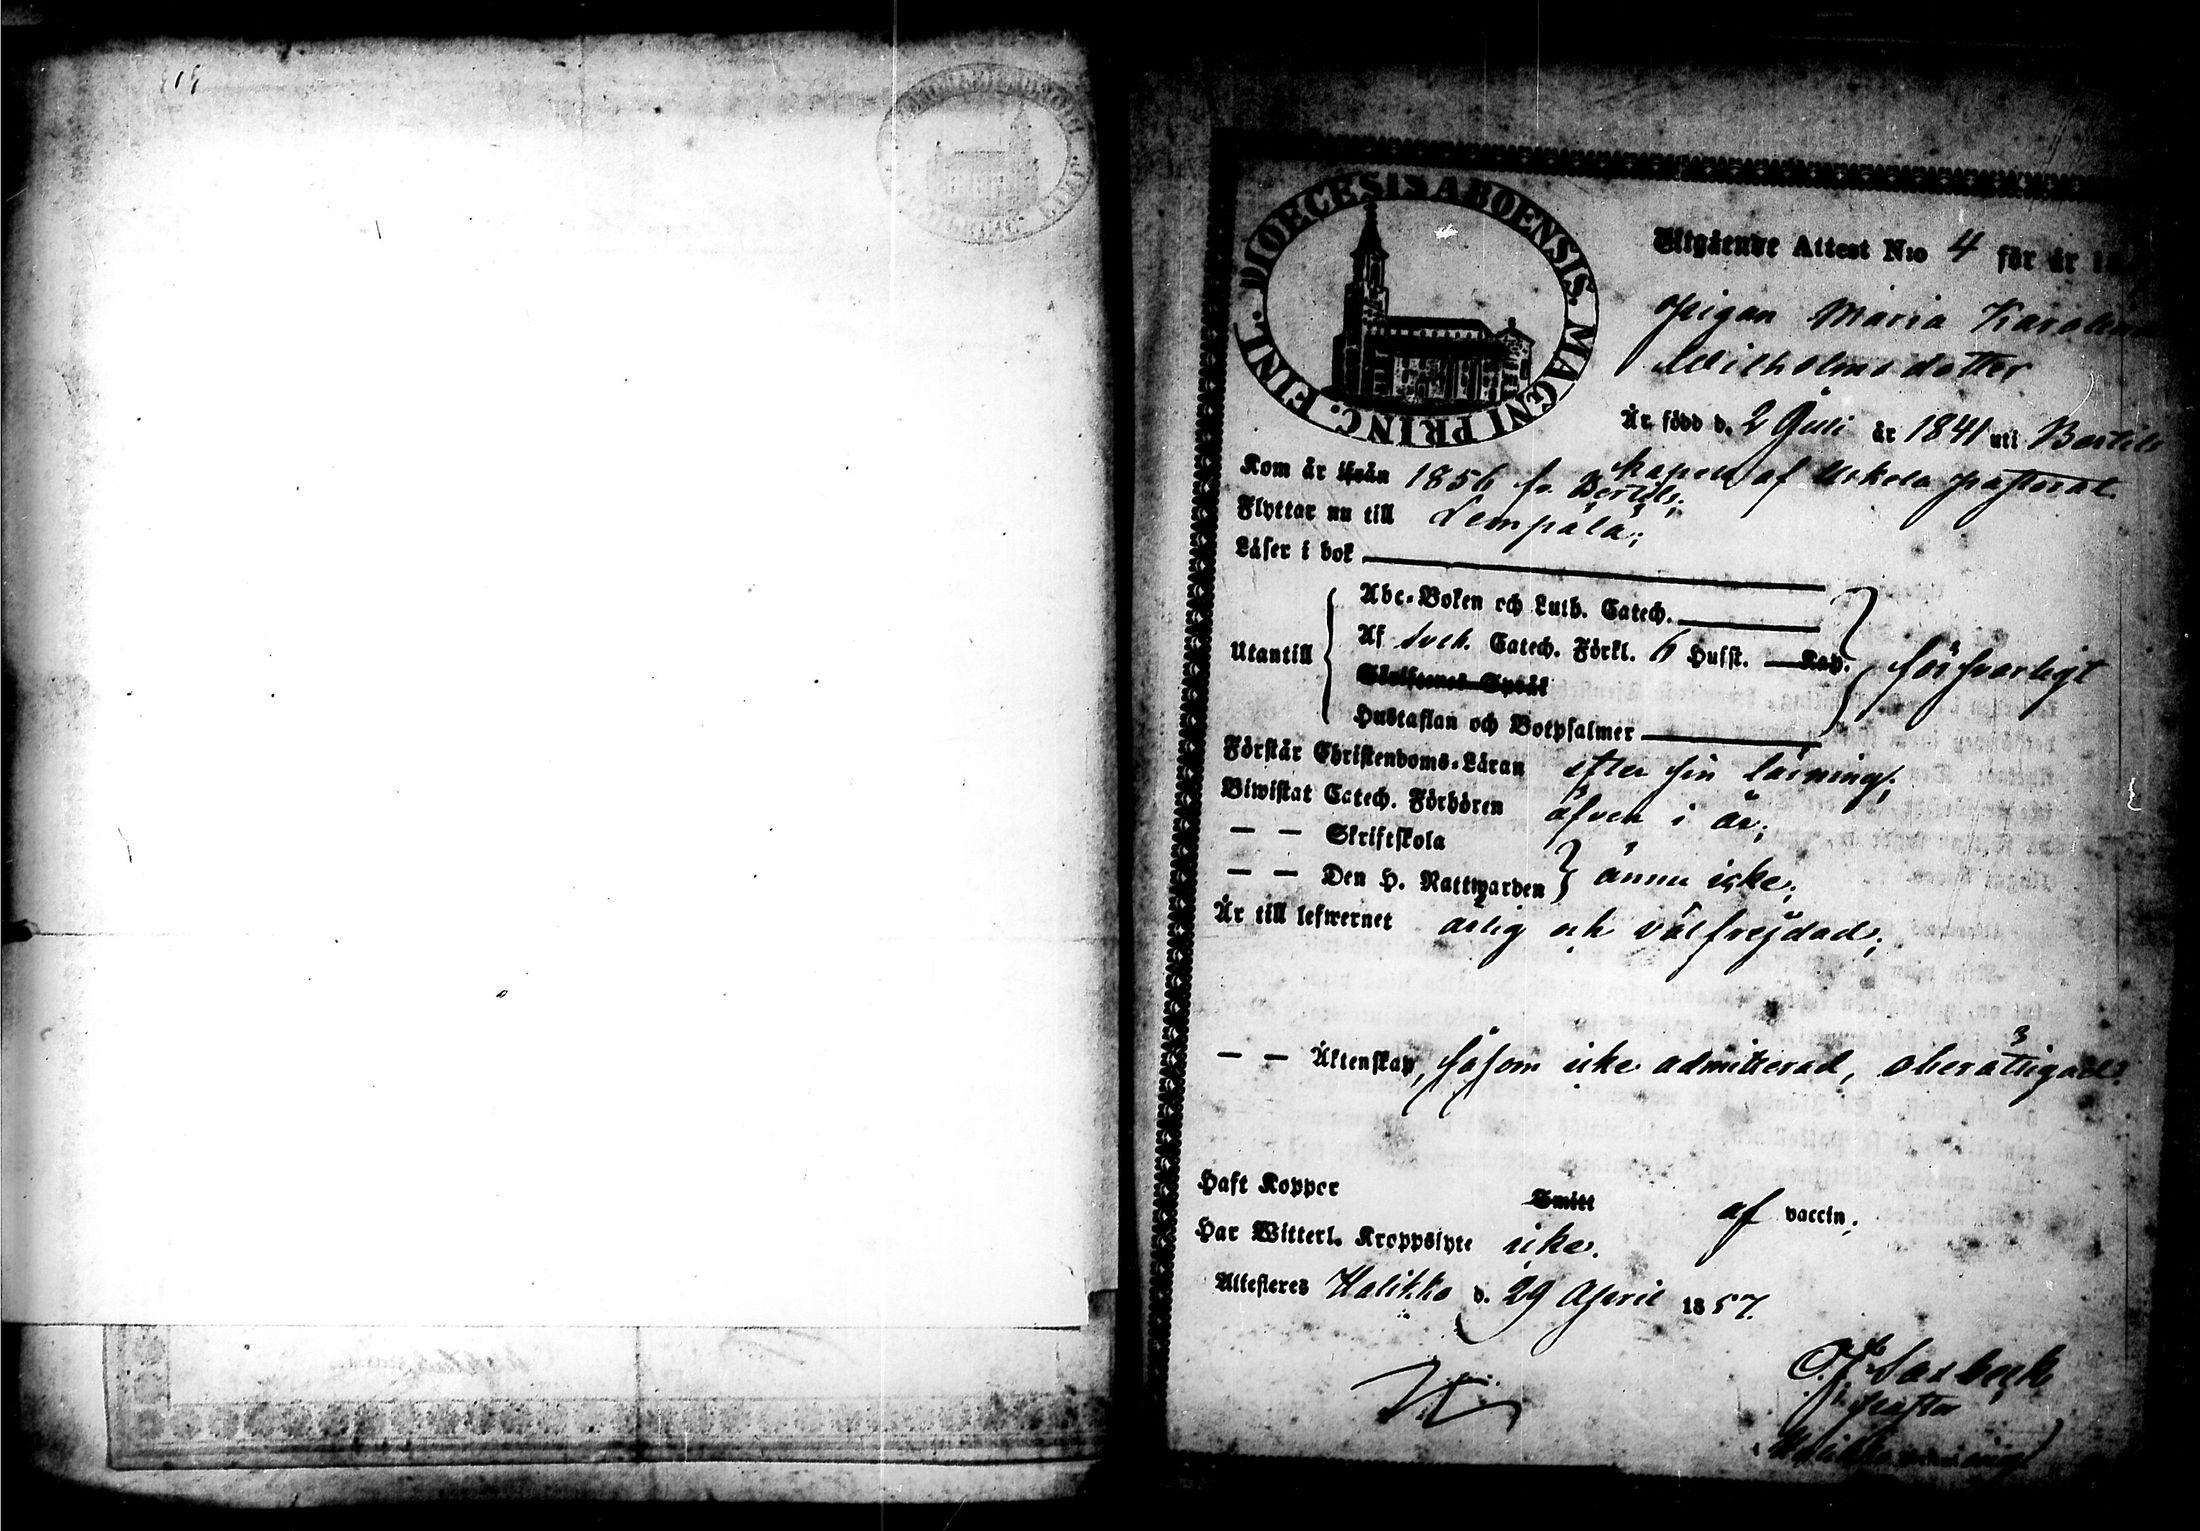 DIOECESIS ABOENSIS. MAGNI PRINC. FINL.
Utgående Attest N:o 4 för år 18
Pigan Maria Karolina
Wilhelmsdotter
Är född d. 2 Juli år 1841 uti Bertils
kapell af Uskela pastorat
Kom år ifrån 1856 fr. Bertils;
Flyttar nu till Lempälä;
Läser i bok
Utantill
Abc-Boken och Luth. Catech.
Af Sveb. Catech. Förkl. 6 Hufst. Kap.
försvarligt
Skriftenes Språk
Hustaflan och Botpsalmer
Förstår Christendoms-Läran efter sin läsning;
Biwistat Catech. Förhören äfven i år;
— — Skriftskola
— — Den H. Nattwarden ännu icke;
Är till lefwernet ärlig och välfrejdad;
— — Äktenskap, såsom icke admitterad, oberättigad.
Haft Koppor Smitt af vaccin;
Har Witterl. Kroppslyte icke.
Attesteras Halikko d. 29 April 1857.
pastor